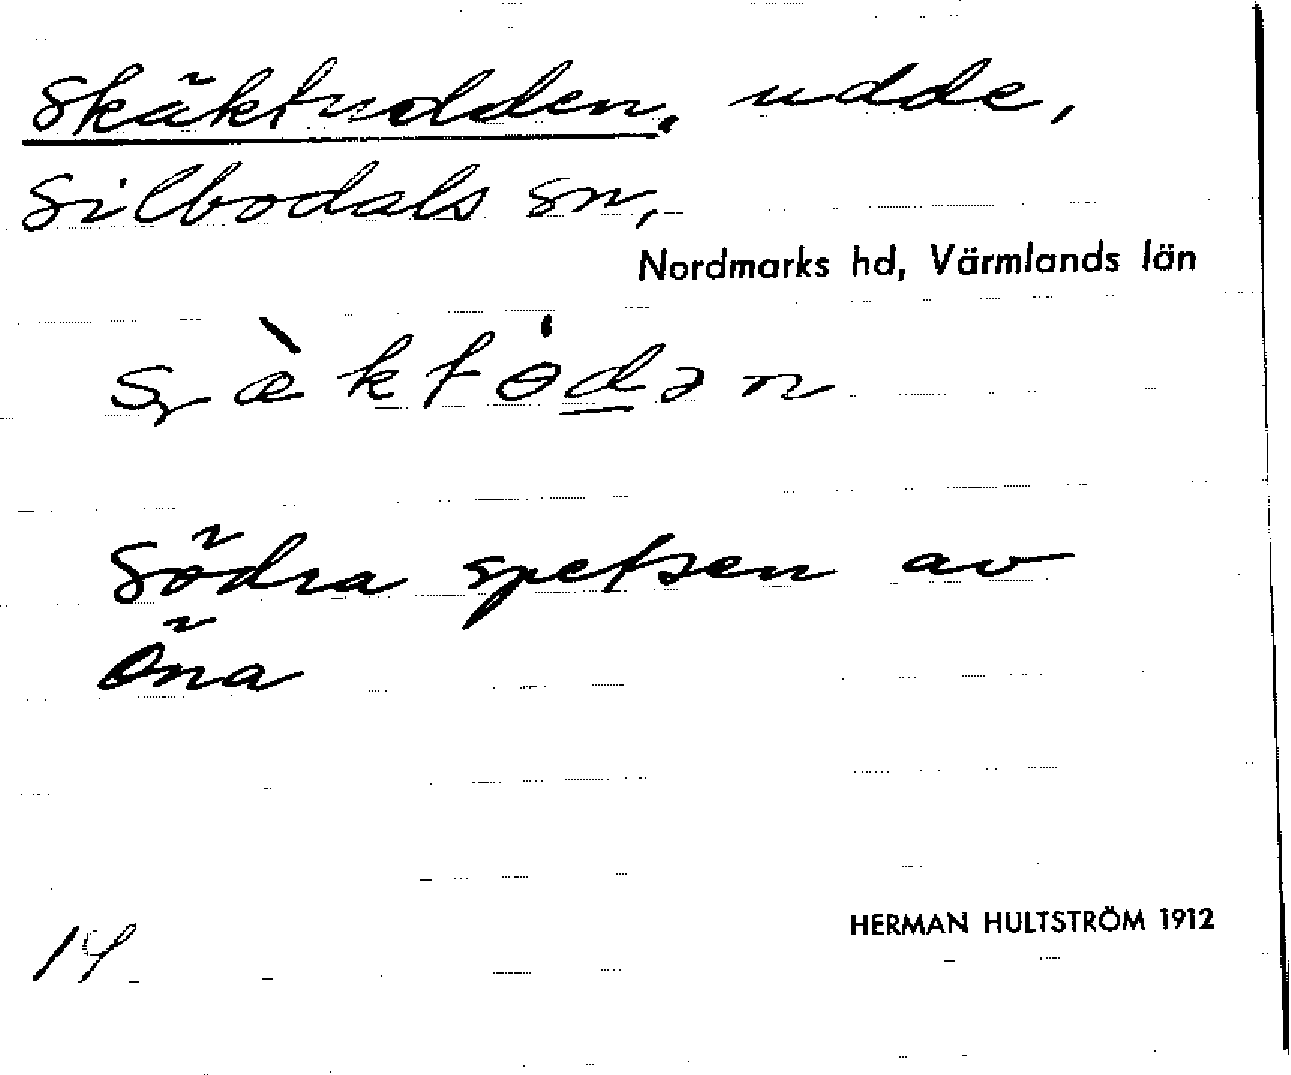 Skäktudden, udde,
Silbodals sn,
Nordmarks hd, Värmlands län
Södra spetsen av
Öna
14
HERMAN HULTSTRÖM 1912